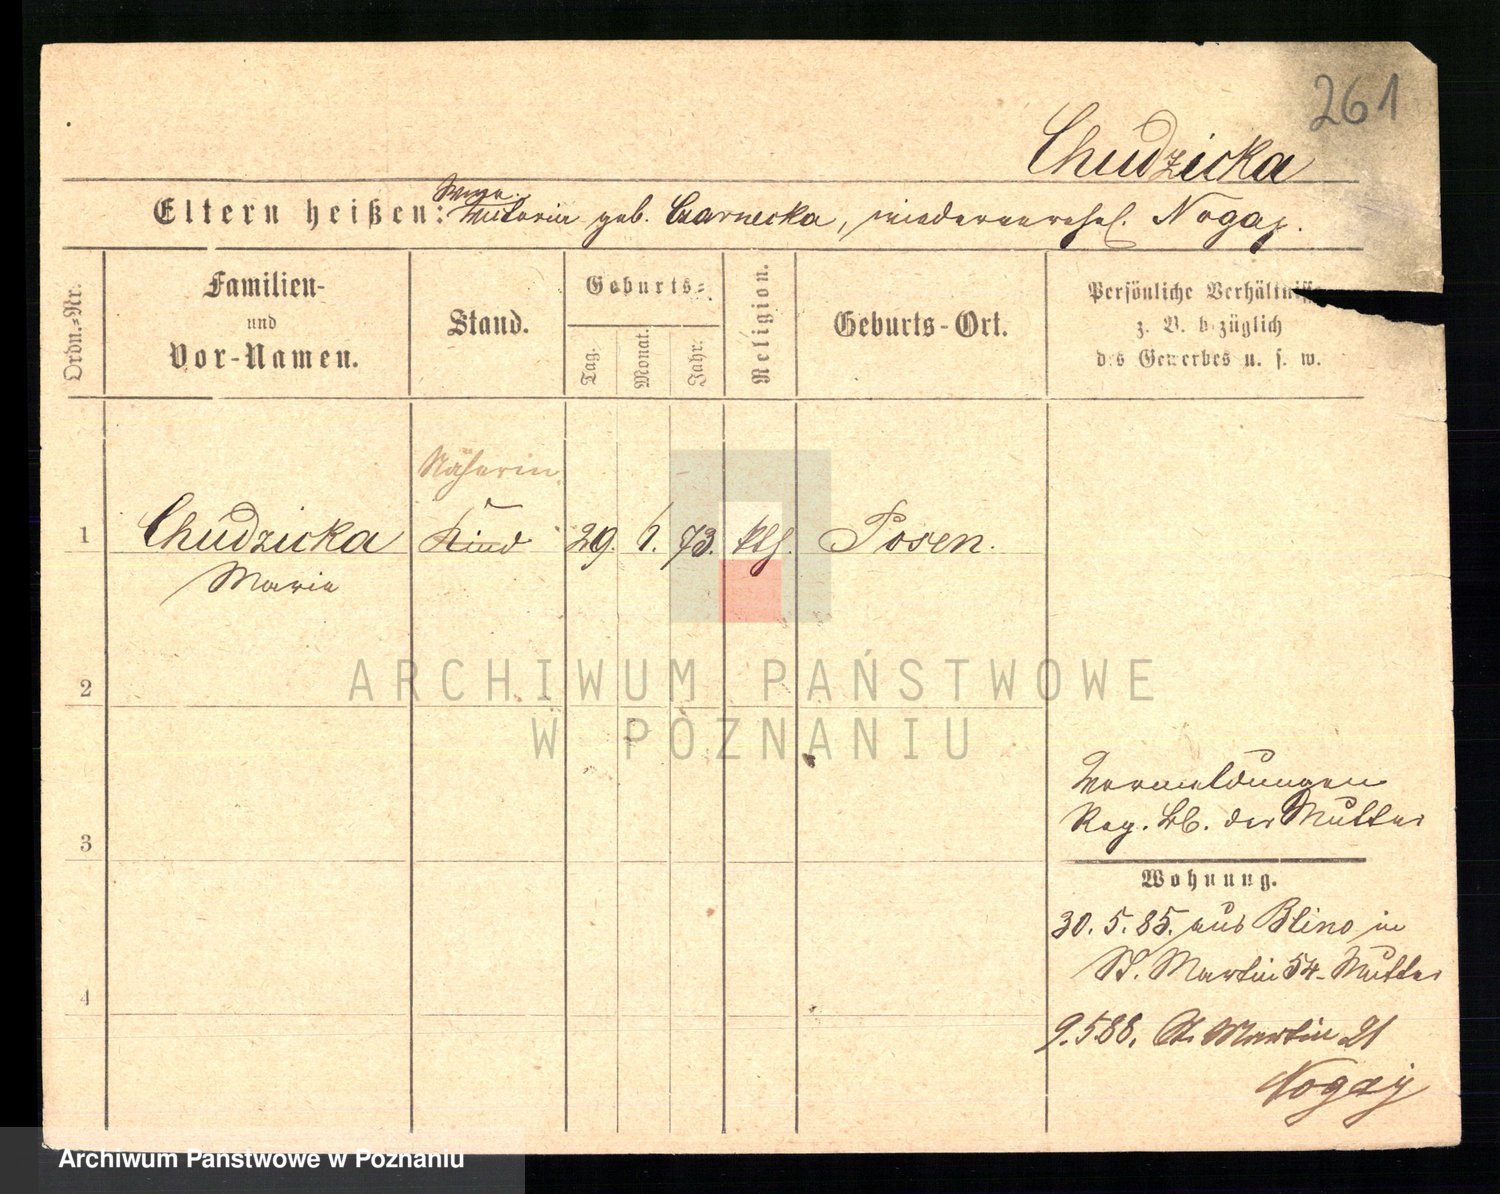 261
Chudzicka
Eltern heißen: Victoria geb. Czarnecka, wiederverehel. Nogaj.
Ordn.-Nr.
Familien-
und
Vor-Namen.
Stand.
Geburts-
Tag.
Monat.
Jahr.
Religion.
Geburts-Ort.
Persönliche Verhältnisse
z. B. bezüglich
des Gewerbes u. s. w.
Näherin
1 Chudzicka Kind 29. 1. 73. kth. Posen.
Marie
2
ARCHIWUM PAŃSTWOWE
W POZNANIU
Vermeldungen
Reg. Bl. der Mutter
3
Wohnung.
30. 5. 85. aus Blino in
St. Martin 54 - Mutter
4
9.5.88. St. Martin 21
Nogaj
Archiwum Państwowe w Poznaniu